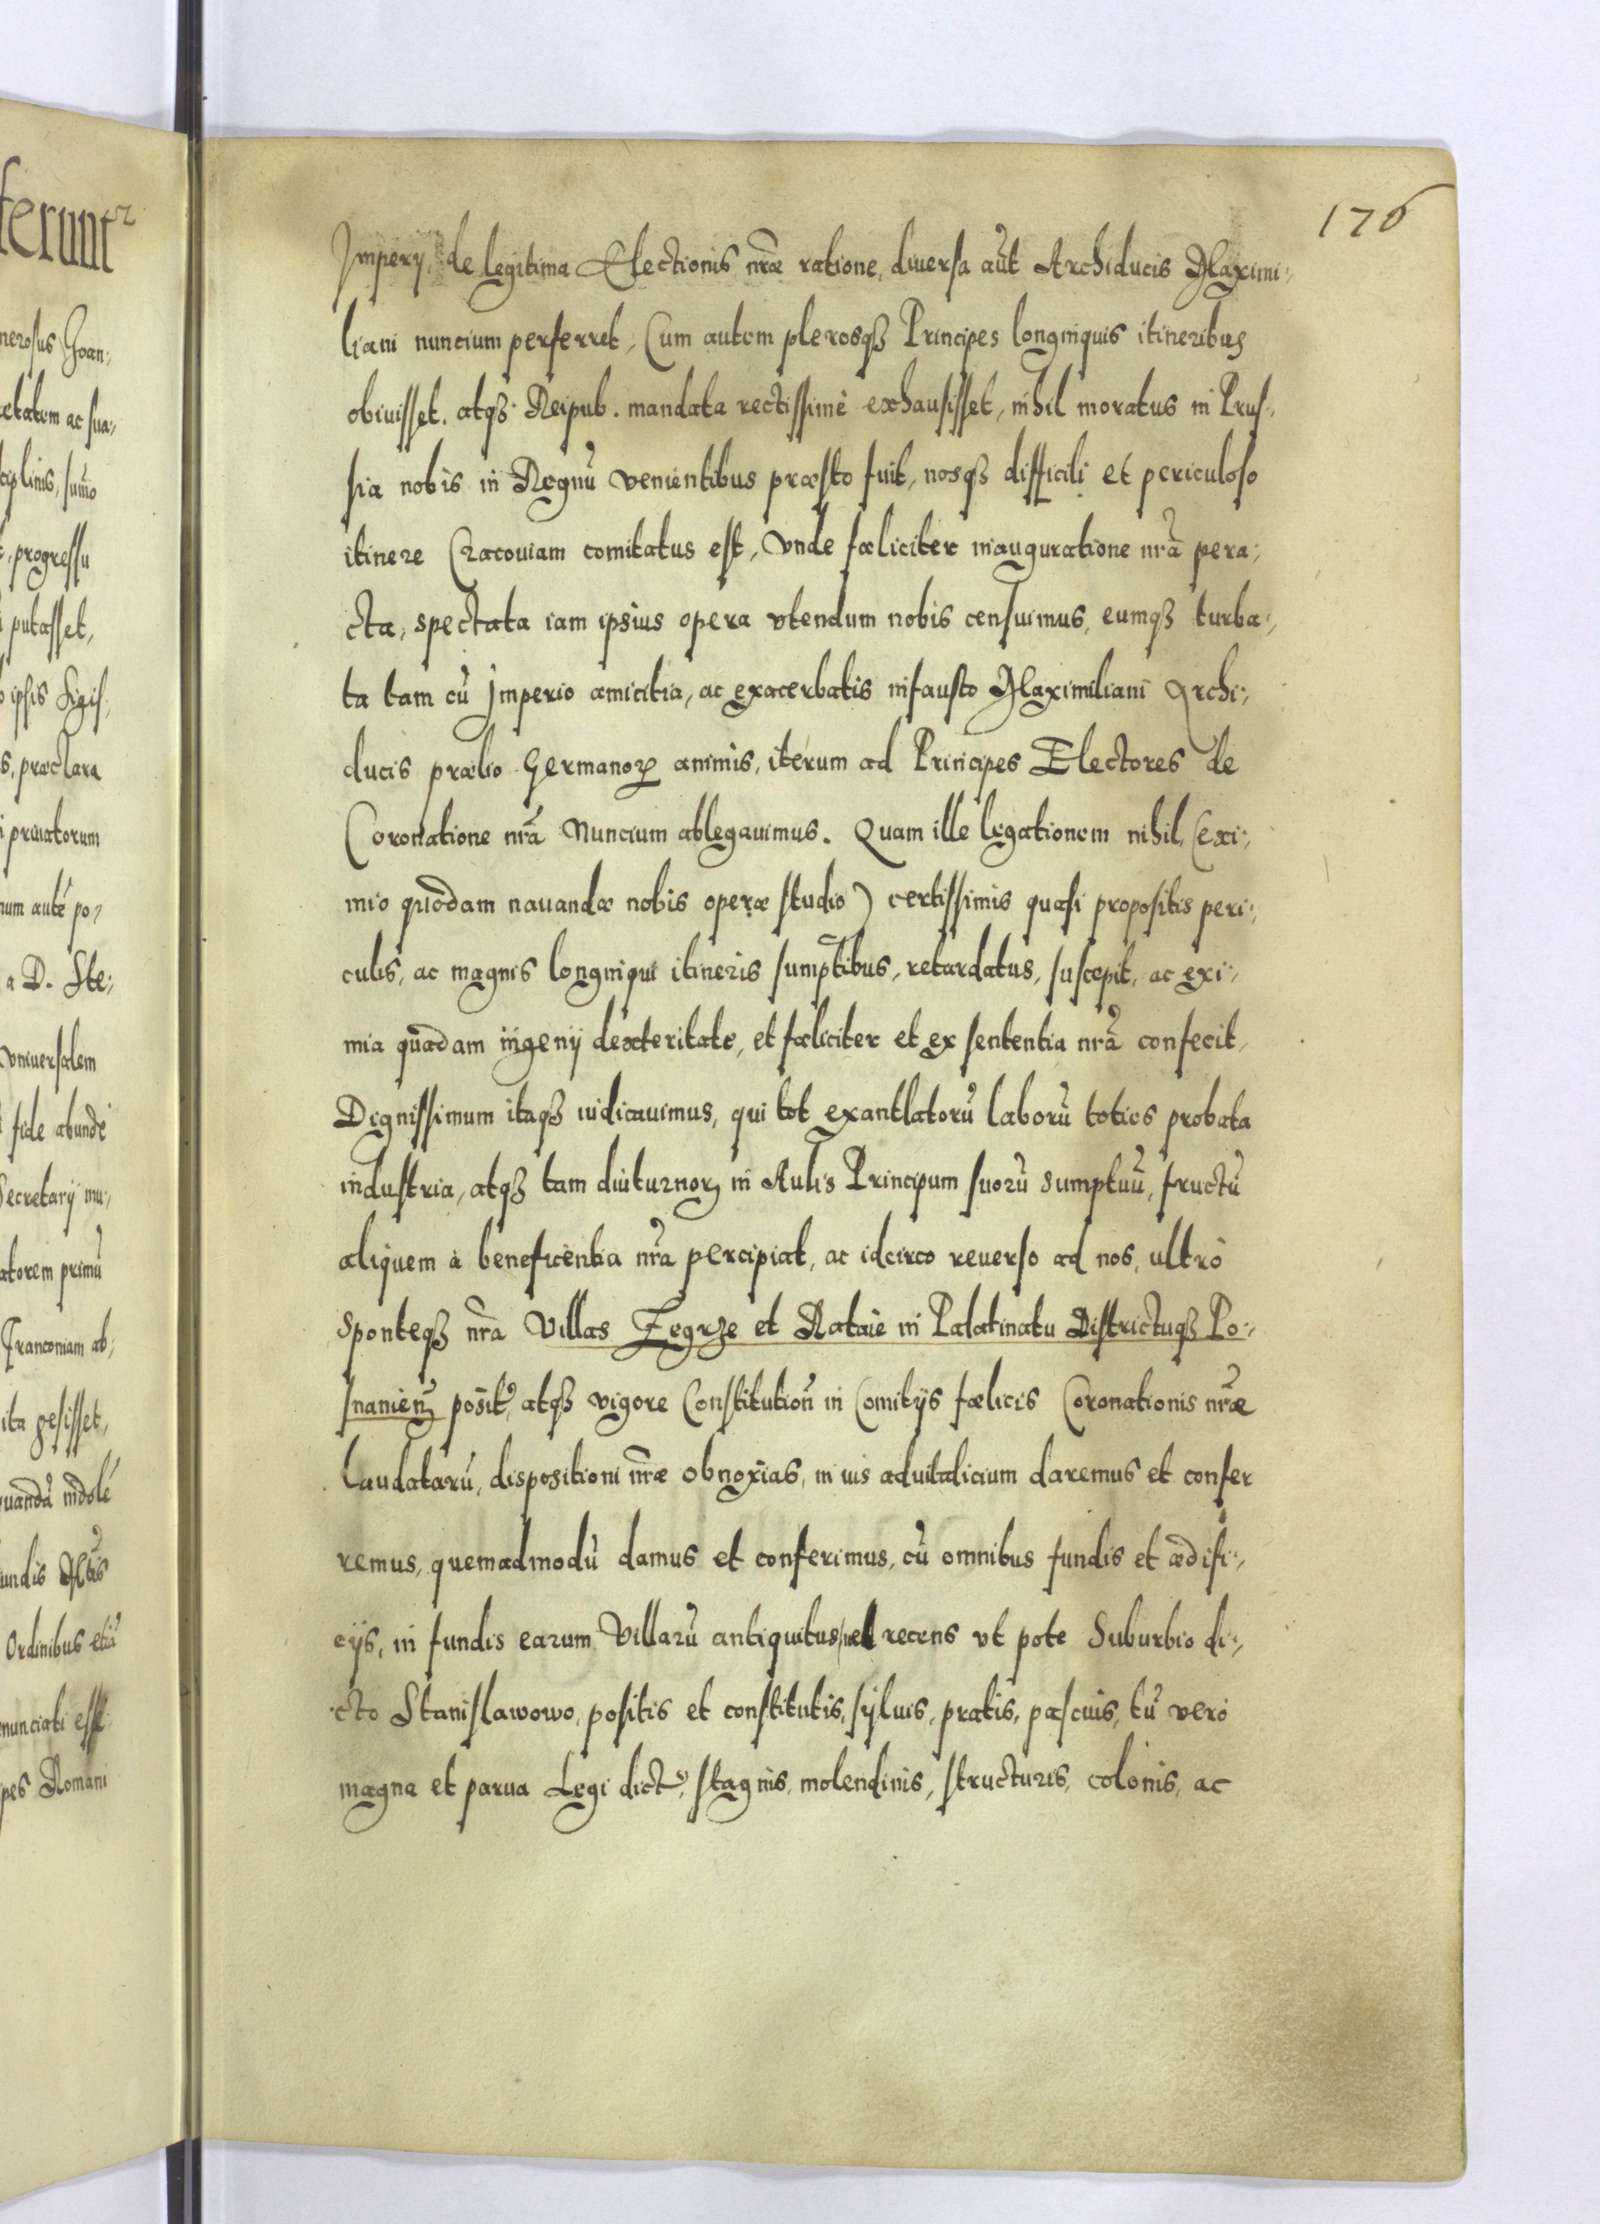 ferunt
nerosus Joan:
etatem ac sua,
ciplinis, sum̄o
, progressu
putasset,
ipsis Sigis,
s, præclara
i priuatorum
num auté po
a D. Ste:
vniuersalem
fide abundé
Secretarij mu,
atorem primũ
Franconiam ab,
ita gesisset,
uandã indolé
undis
Ordinibus etiã
nunciati esse
pes Romani
176
Jmperij, de legitima Electionis nr̃æ ratione, diuersa aũt Archiducis Maximi:
liani nuncium perferret, Cum autem plerosqȝ Principes longinquis itineribus
obiuisset, atqȝ Reipub. mandata rectissimè exhausisset, nihil moratus in Prus,
sia nobis in Regnũ venientibus præsto fuit, nosqȝ difficili et periculoso
itinere Cracouiam comitatus est, Vnde fœliciter inauguratione nr̃a pera,
cta, spectata iam ipsius opera vtendum nobis censuimus, eumqȝ turba,
ta tam cũ Jmperio amicitia, ac exacerbatis infausto Maximiliani Archi,
ducis prælio Germanoꝝ animis, iterum ad Principes Electores de
Coronatione nr̃a Nuncium ablegauimus. Quam ille legationem nihil (exi,
mio quodam nauandæ nobis operæ studio) certissimis quasi propositis peri,
culis, ac magnis longinqui itineris sumptibus, retardatus, suscepit, ac exi,
mia quadam ingenij dexteritate, et fœliciter et ex sententia nr̃a confecit,
Dignissimum itaqȝ iudicauimus, qui tot exantlatorũ laborũ toties probata
industria, atqȝ tam diuturnoꝝ in Aulis Principum suorũ sumptuũ, fructũ
aliquem à beneficentia nr̃a percipiat, ac idcirco reuerso ad nos, vltrò
sponteqȝ nr̃a Villas Zegrze et Rataie in Palatinatu Districtuqȝ Po,
snanien̄ posit̃, atqȝ vigore Constitution̄ in Comitijs fœlicis Coronationis nr̃æ
laudatarũ, dispositioni nr̃æ obnoxias, in ius aduitalicium daremus et confer
remus, quemadmodũ damus et conferimus, cũ omnibus fundis et ædifi,
cijs, in fundis earum Villarũ antiquitus, vel recens vt pote Suburbio di,
cto Stanislawowo, positis et constitutis, syluis, pratis, pascuis, tũ vero
magna et parua Legi dict̃, stagnis, molendinis, structuris, colonis, ac